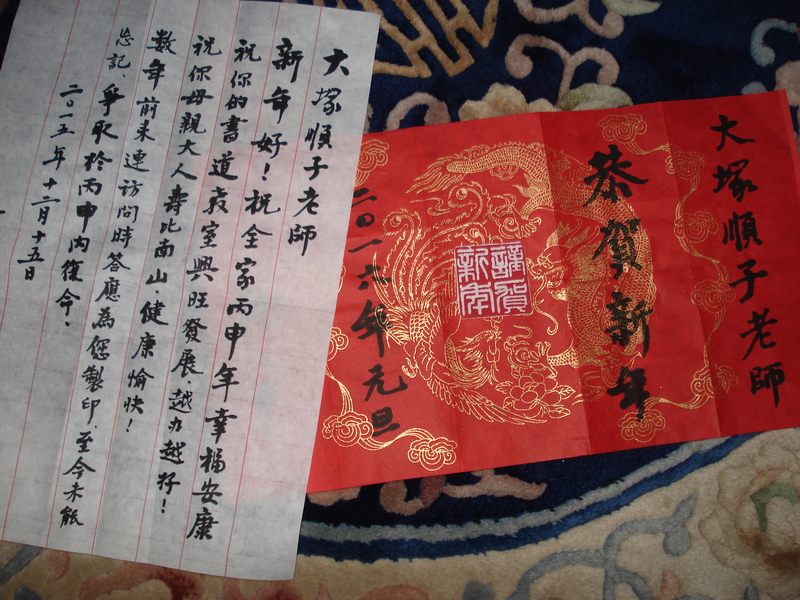 大塚順子老師
新年好！祝全家丙申年幸福安康
祝你的書道教室興旺發展．越办越好！
祝你母親大人壽比南山健康愉快！
數年前來連訪問時答應為您製印．至今未能
忘記．爭取於丙申内復命．
二〇一五年十二月十五日
大塚順子老師
恭賀新年
謹賀
新年
二〇一六年元旦